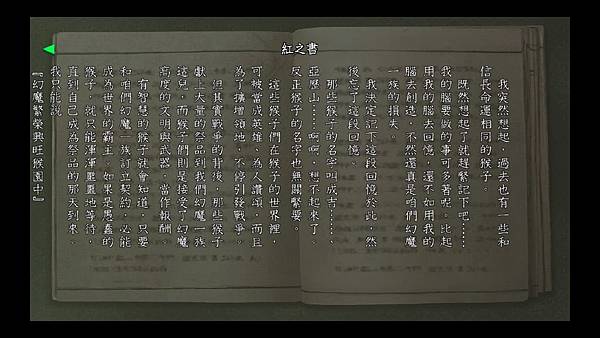 紅之書
我突然想起，過去也有一些和
信長命運相同的猴子。
既然想起了就趕緊記下吧……
我的腦要做的事可多著呢。比起
用我的腦去回憶，還不如用我的
腦去創造，不然還真是咱們幻魔
一族的損失。
我決定記下這段回憶於此，然
後忘了這段回憶。
那些猴子的名字叫成吉……、
亞歷山……啊啊，想不起來了。
反正猴子的名字也無關緊要。
這些猴子們在猴子的世界裡，
可被當成英雄，為人讚頌，而且
為了擴增領地，不停引發戰爭。
但其實戰爭的背後，那些猴子
獻上大量的祭品到我們幻魔一族
這兒，而猴子們則是接受了幻魔
高度的文明與武器，當作報酬。
有智慧的猴子就會知道，只要
和咱們幻魔一族訂立契約，必能
成為世界的霸主。如果是愚蠢的
猴子，就只能渾渾噩噩地等待，
直到自己成為祭品的那天到來。
我只能說
『幻魔繁榮興旺猴園中』